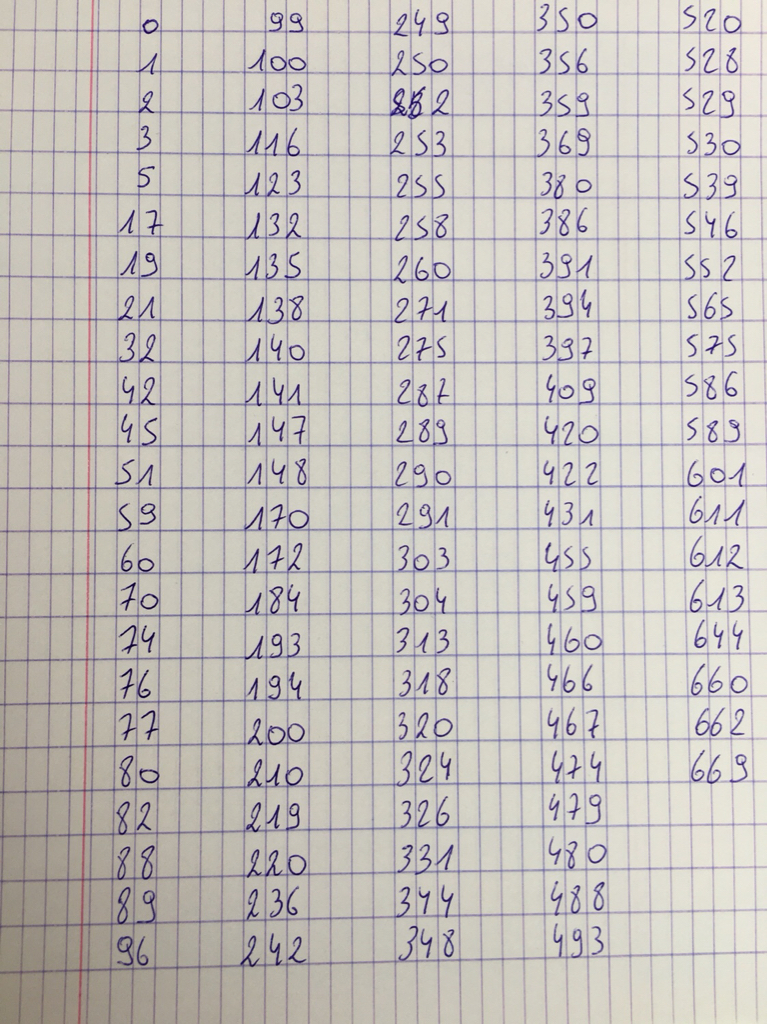 0 99 249 350 520
1 100 250 356 528
2 103 252 359 529
3 116 253 369 530
5 123 255 380 539
17 132 258 386 546
19 135 260 391 552
21 138 271 394 565
32 140 275 397 575
42 141 287 409 586
45 147 289 420 589
51 148 290 422 601
59 170 291 431 611
60 172 303 455 612
70 184 304 459 613
74 193 313 460 644
76 194 318 466 660
77 200 320 467 662
80 210 324 474 669
82 219 326 479
88 220 331 480
89 236 344 488
96 242 348 493